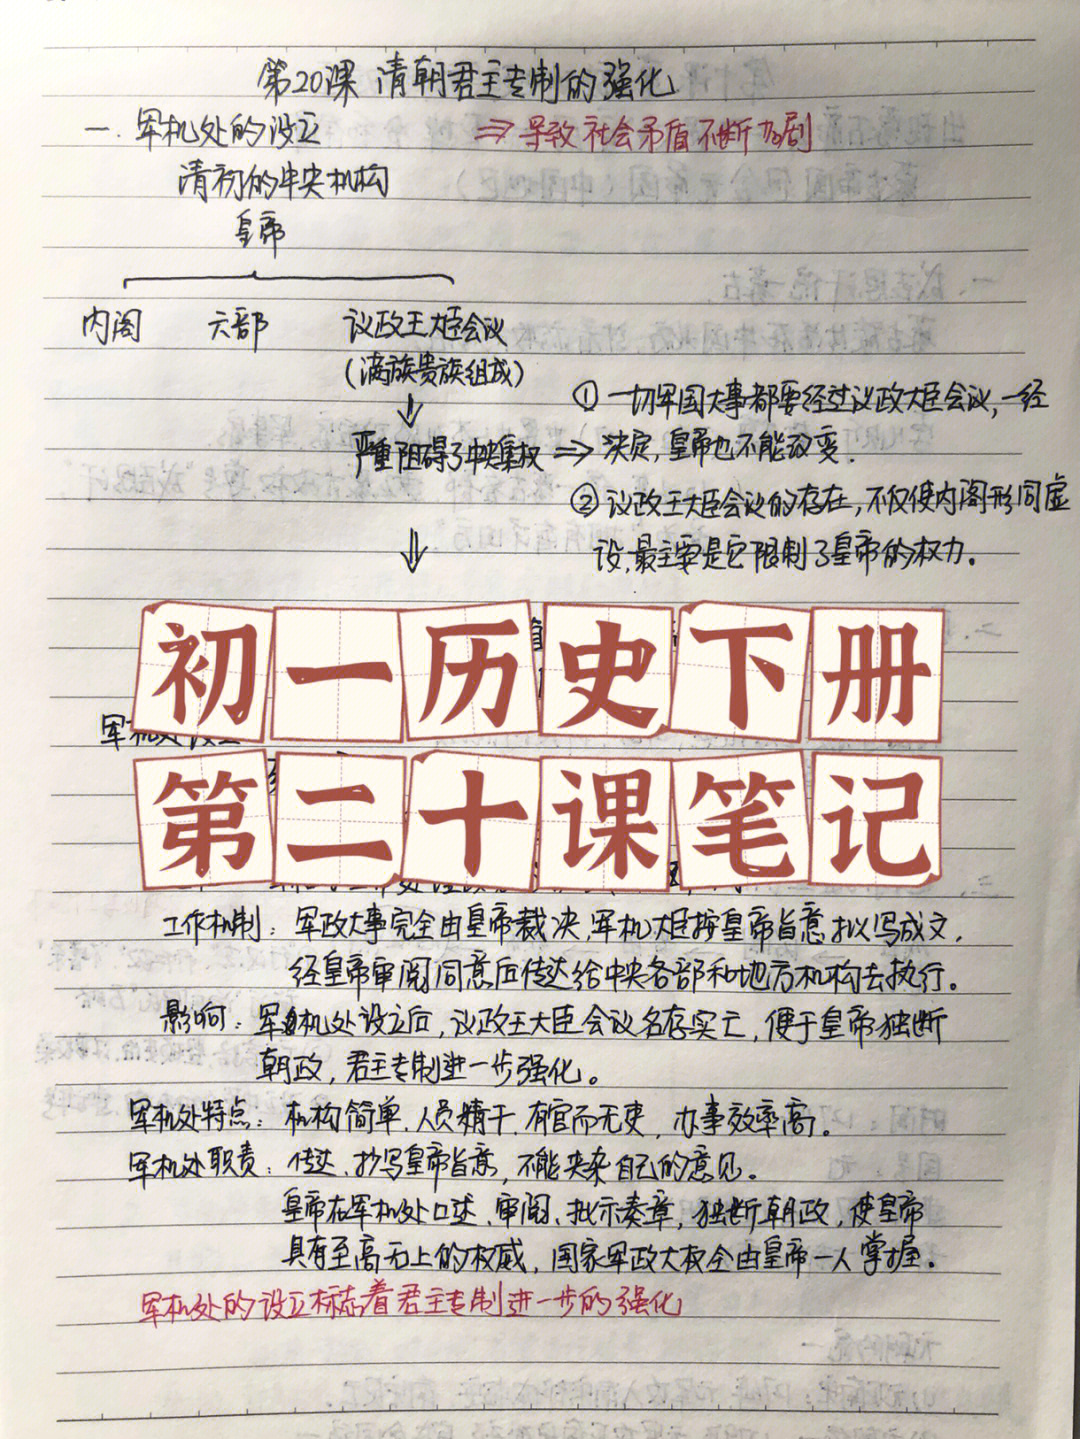 第20课 清朝君主专制的强化
一. 军机处的设立 ⇒ 导致社会矛盾不断加剧
清初的中央机构
皇帝
内阁 六部 议政王大臣会议
(满族贵族组成)
① 一切军国大事都要经过议政大臣会议,一经
严重阻碍了中央集权 ⇒ 决定,皇帝也不能改变.
② 议政王大臣会议的存在,不仅使内阁形同虚
设,最主要是它限制了皇帝的权力。
初一历史下册
军机处设立
第二十课笔记
工作机制: 军政大事完全由皇帝裁决,军机大臣按皇帝旨意拟写成文,
经皇帝审阅同意后传达给中央各部和地方机构去执行。
影响: 军机处设立后,议政王大臣会议名存实亡,便于皇帝独断
朝政,君主专制进一步强化。
军机处特点: 机构简单,人员精干,有官而无吏,办事效率高。
军机处职责: 传达、抄写皇帝旨意,不能夹杂自己的意见。
皇帝在军机处口述、审阅、批示奏章,独断朝政,使皇帝
具有至高无上的权威,国家军政大权全由皇帝一人掌握。
军机处的设立标志着君主专制进一步的强化